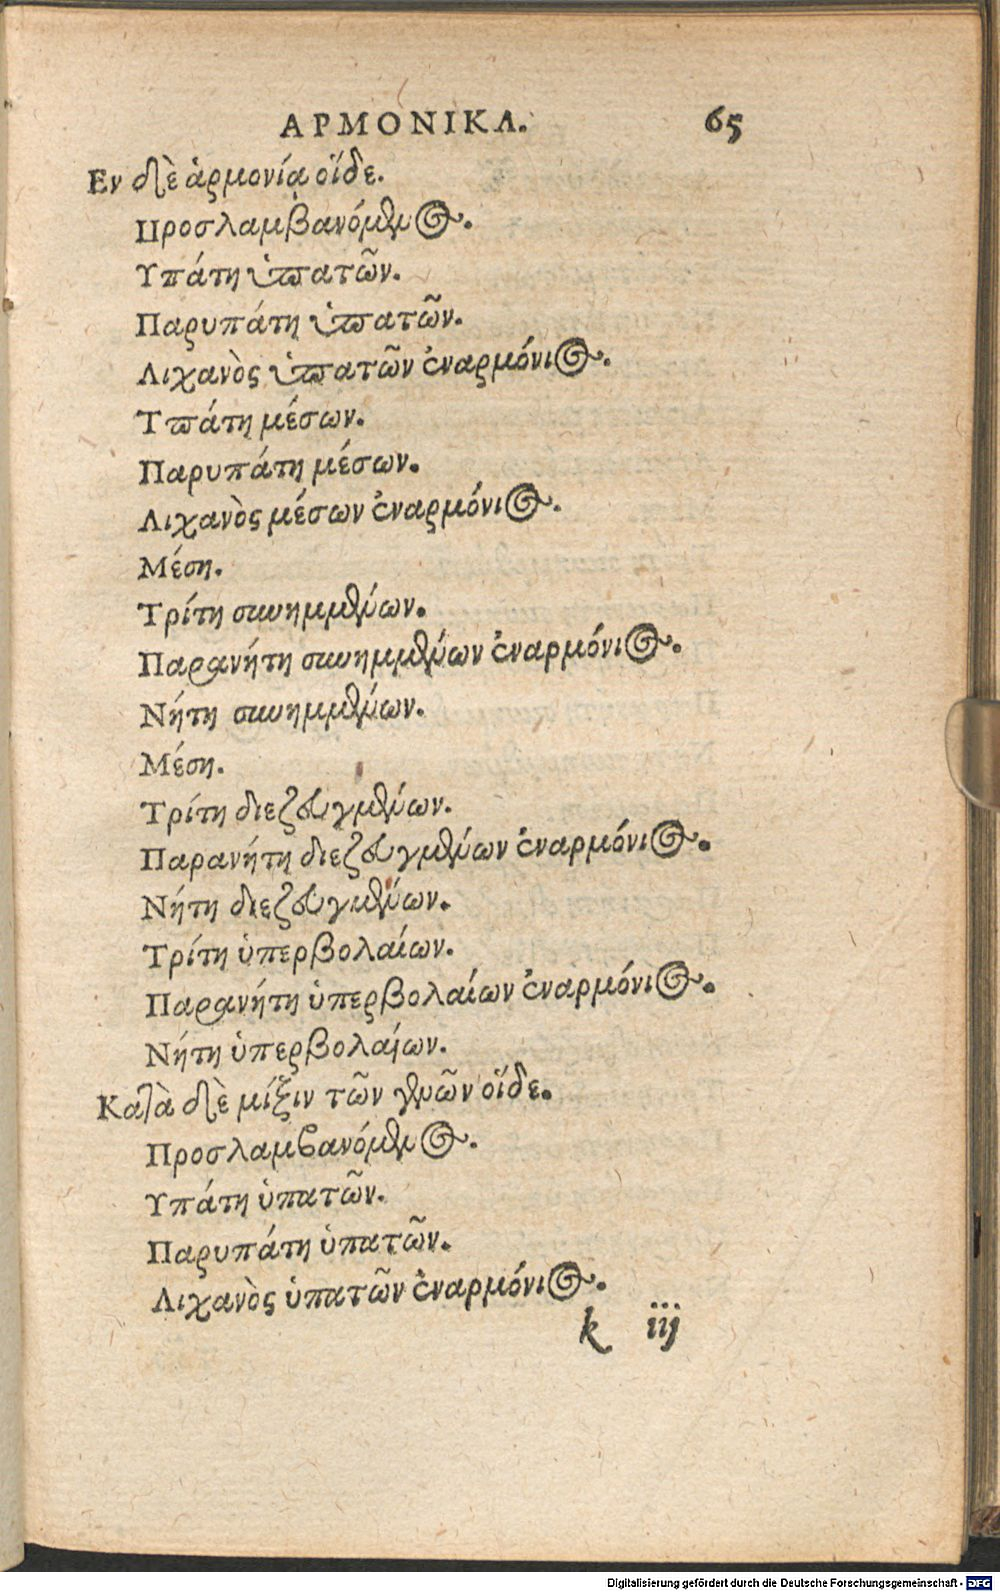 ΑΡΜΟΝΙΚΑ. 65
Εν δὲ ἁρμονίᾳ οἵδε.
Προσλαμβανόμενος.
Υπάτη ὑπατῶν.
Παρυπάτη ὑπατῶν.
Λιχανὸς ὑπατῶν ἐναρμόνιος.
Υπάτη μέσων.
Παρυπάτη μέσων.
Λιχανὸς μέσων ἐναρμόνιος.
Μέση.
Τρίτη συνημμένων.
Παρανήτη συνημμένων ἐναρμόνιος.
Νήτη συνημμένων.
Μέση.
Τρίτη διεζευγμένων.
Παρανήτη διεζευγμένων ἐναρμόνιος.
Νήτη διεζευγμένων.
Τρίτη ὑπερβολαίων.
Παρανήτη ὑπερβολαίων ἐναρμόνιος.
Νήτη ὑπερβολαίων.
Κατὰ δὲ μίξιν τῶν γενῶν οἵδε.
Προσλαμβανόμενος.
Υπάτη ὑπατῶν.
Παρυπάτη ὑπατῶν.
Λιχανὸς ὑπατῶν ἐναρμόνιος.
k iij
Digitalisierung gefördert durch die Deutsche Forschungsgemeinschaft - DFG